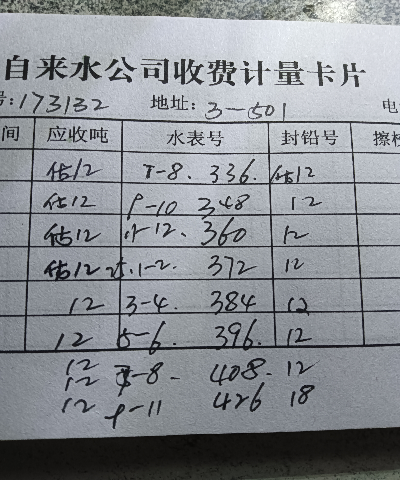 自来水公司收费计量卡片
号:173132 地址: 3-501 电
间 应收吨 水表号 封铅号 擦
估12 7-8. 336. 估12
估12 9-10 348 12
估12 11-12. 360 12
估12 25.1-2. 372 12
12 3-4. 384 12
12 5-6. 396. 12
12
12 7-8- 408. 12
12 9-11 426 18